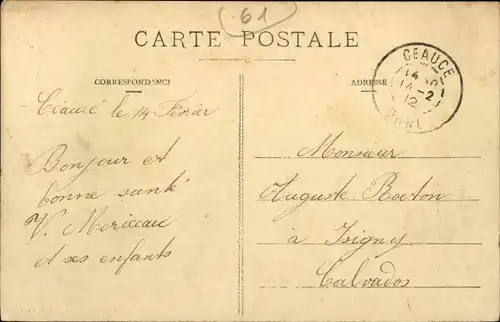 61
CARTE POSTALE
CORRESPONDANCE
ADRESSE
CEAUCE
14
14-2
12
ORNE
Céaucé le 14 Février
Bonjour et
bonne santé
V. Morineau
et ses enfants
Monsieur
Auguste Bocton
à Isigny
Calvados